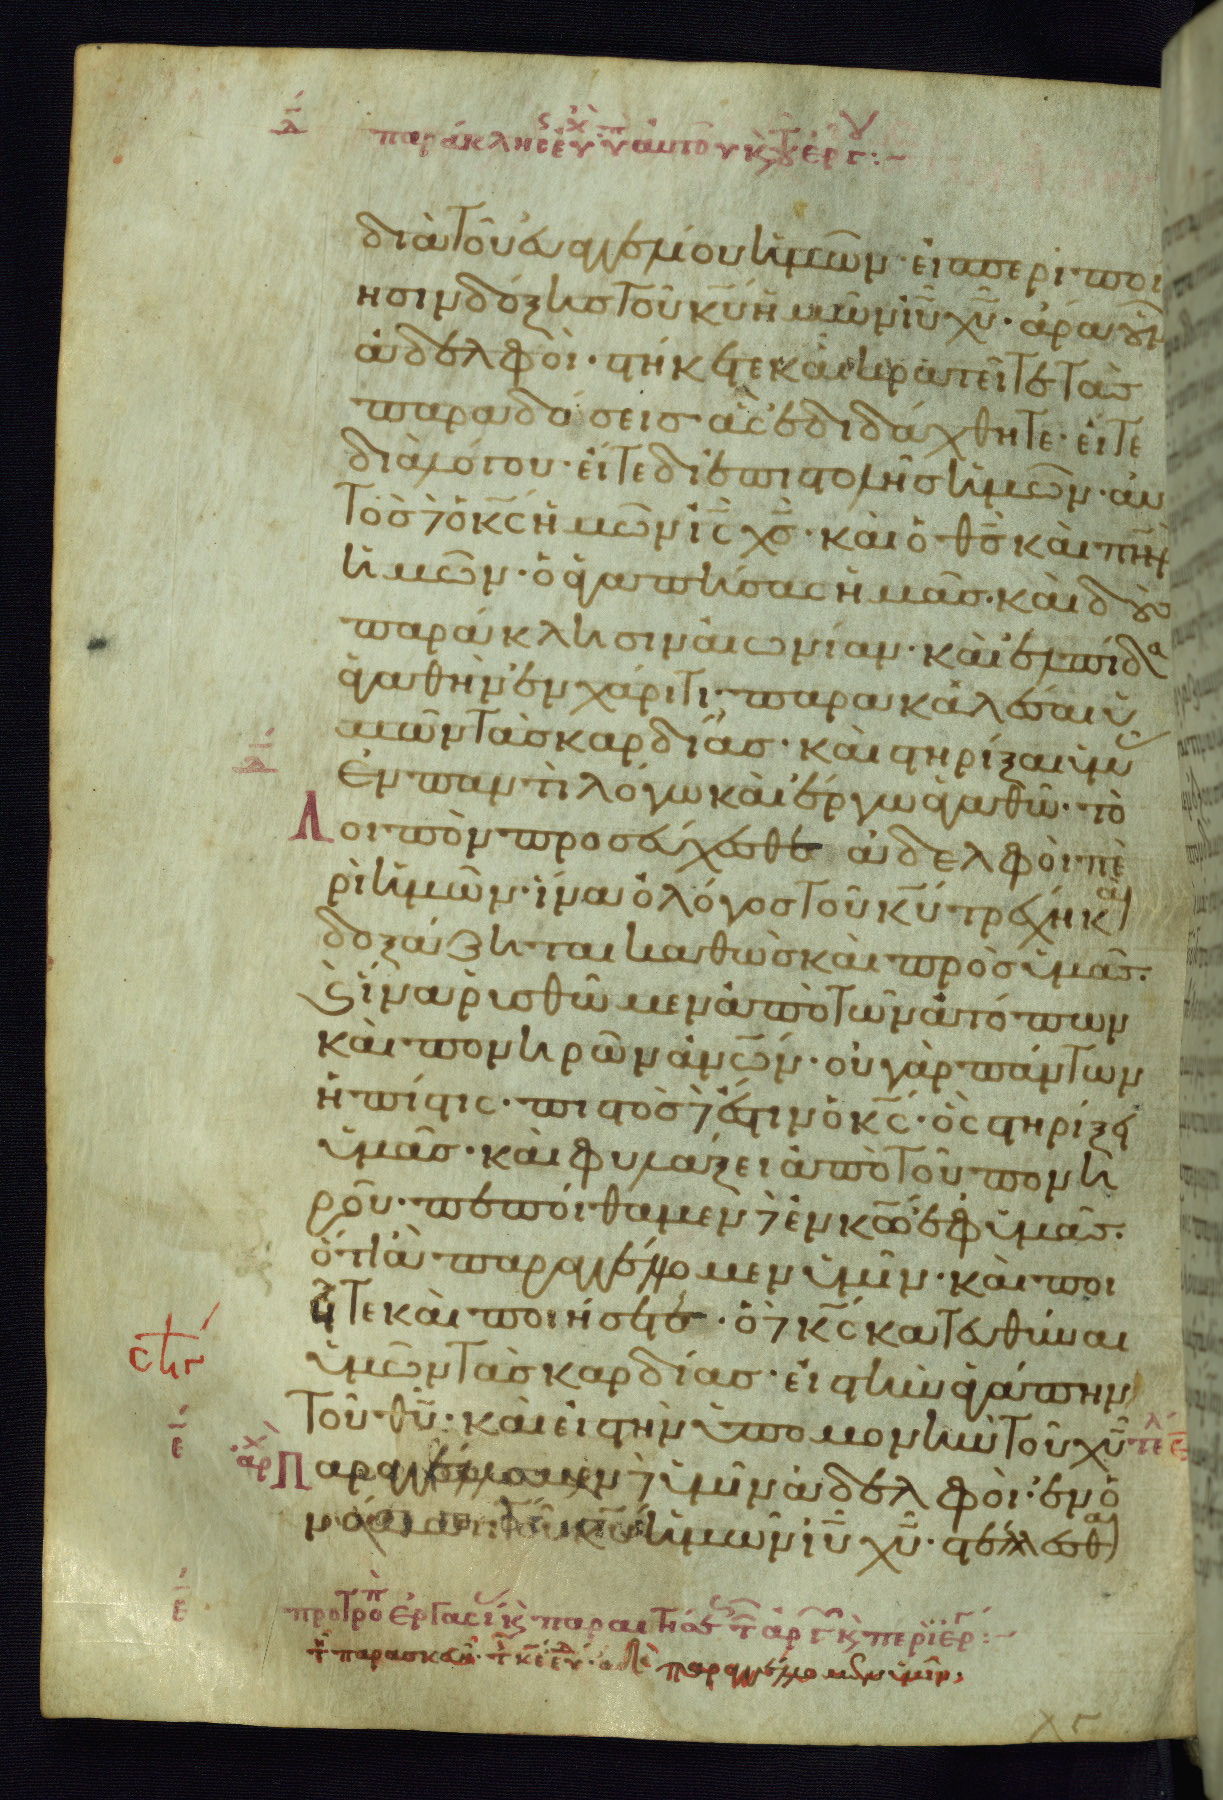 δ
παράκλησις εὐχ ὑπ αὐτοῦ κ τοῦ ἔργου:~
διὰ τοῦ εὐαγγελίου ἡμῶν· εἰς περιποί
ησιν δόξης τοῦ κυ ἡμῶν ιυ χυ· ἄρα οὖν
ἀδελφοὶ· στήκετε καὶ κρατεῖτε τὰς
παραδόσεις· ἃς ἐδιδάχθητε· εἴτε
διὰ λόγου· εἴτε δι ἐπιστολῆς ἡμῶν· αὐ
τὸς δὲ ὁ κς ἡμῶν ις χς· καὶ ὁ θς καὶ πηρ
ἡμῶν· ὁ ἀγαπήσας ἡμᾶς· καὶ δοὺς
παράκλησιν αἰωνίαν· καὶ ἐλπίδα
ἀγαθὴν ἐν χάριτι· παρακαλέσαι ὑ
μῶν τὰς καρδίας· καὶ στηρίξαι ὑμᾶς
δ
ἐν παντὶ λόγω καὶ ἔργω ἀγαθῶ· τὸ
Λοιπὸν προσεύχεσθε ἀδελφοὶ πε
ρὶ ἡμῶν· ἵνα ὁ λόγος τοῦ κυ τρέχη καὶ
δοξάζηται καθὼς καὶ πρὸς ὑμᾶς·
καὶ ἵνα ρυσθῶμεν ἀπὸ τῶν ἀτόπων
καὶ πονηρῶν ανῶν· οὐ γὰρ πάντων
ἡ πίστις· πιστὸς δέ ἐστιν ὁ κς· ὃς στηρίξει
ὑμᾶς· καὶ φυλάξει ἀπὸ τοῦ πονη
ροῦ· πεποίθαμεν δὲ ἐν κω ἐφ ὑμᾶς·
ὅτι ἃ παραγγέλλομεν ὑμῖν· καὶ ποι
εῖτε καὶ ποιήσετε· ὁ δὲ κς κατευθύναι
ὑμῶν τὰς καρδίας· εἰς τὴν ἀγάπην
τοῦ θυ· καὶ εἰς τὴν ὑπομονὴν τοῦ χυ τε
ε
ἀρχ
Παραγγέλλομεν δὲ ὑμῖν ἀδελφοὶ· ἐν ὀ
νόματι τοῦ κυ ἡμῶν ιυ χυ· στέλλεσθαι
ε
προτροπ ἐργασί κ παραίτησ τ ἀργ κ περιέρ:~
τ παρασκευ· τ κε παραγγέλλομεν ὑμῖν·